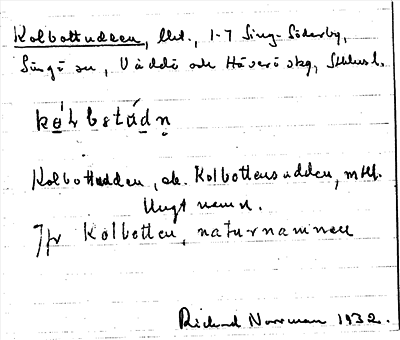 Kolbottudden, Utl., 1-7 Sing-Söderby,
Singö sn, Väddö och Häverö skg, Sthlms l.
Kolbottudden, el. Kolbottensudden, mtbl.
Ungt namn.
Jfr Kolbotten, naturnamnen
Rickard Norrman 1932.